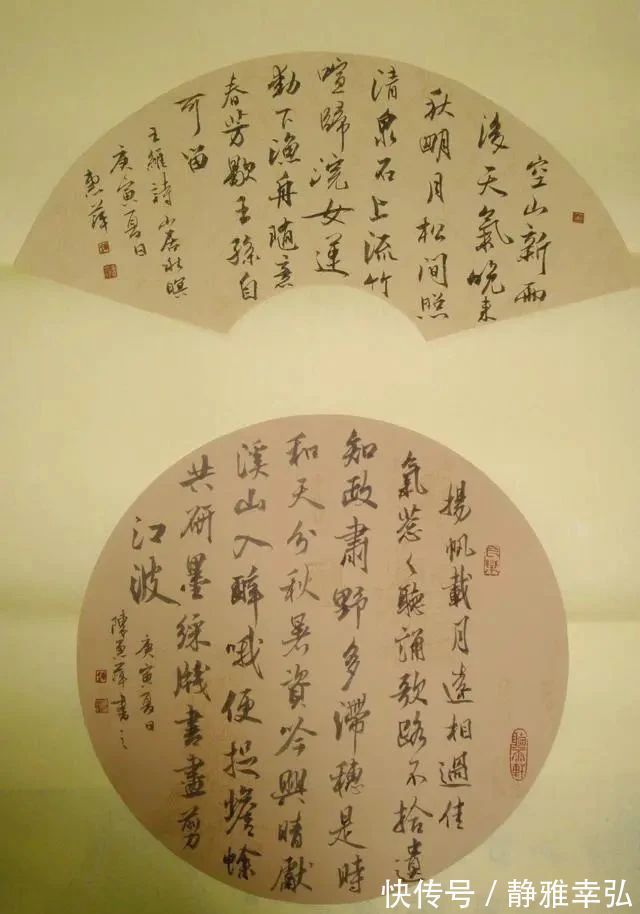 空山新雨
後天氣晚来
秋明月松間照
清泉石上流竹
喧歸浣女蓮
動下漁舟随意
春芳歇王孫自
可留
王維詩山居秋暝
庚寅夏日
惠萍
揚帆載月遠相過佳
氣葱々聽誦歌路不拾遺
知政肅野多滯穗是時
和天分秋暑資吟興晴獻
溪山入醉哦便捉蟾蜍
共研墨綵牋書盡剪
江波
庚寅夏日
陳惠萍書之
快传号 / 静雅幸弘